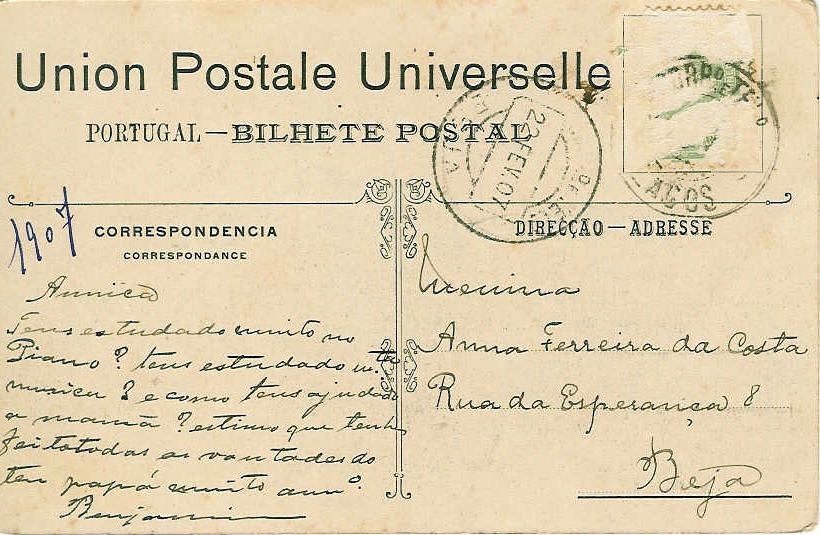 Union Postale Universelle
PORTUGAL — BILHETE POSTAL
22 FEV. 07
AÇOS
1907
CORRESPONDENCIA
CORRESPONDANCE
Annica
Tens estudado muito no
Piano? tens estudado m.ta
musica? e como tens ajudado
a mamã? estimo que tenhas
feito todas as vontades do
teu papá muito am.o
Benjamin
DIRECÇÃO — ADRESSE
Menina
Anna Ferreira da Costa
Rua da Esperança 8
Beja